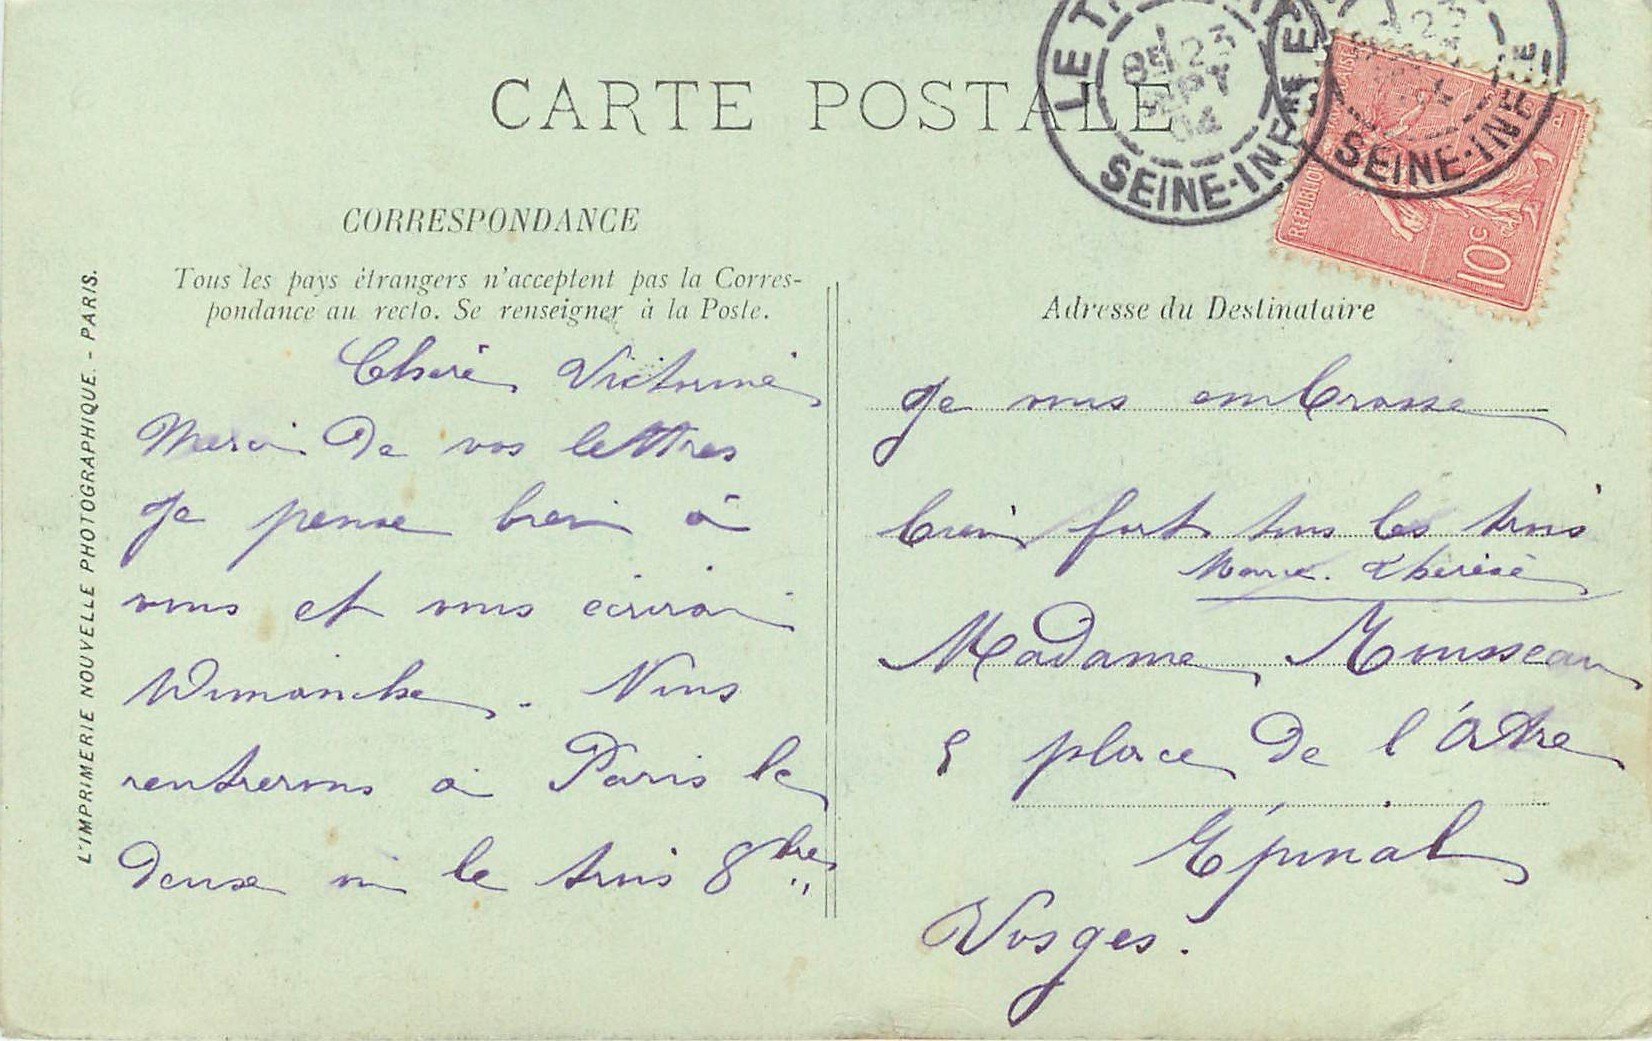 CARTE POSTALE
LE T
8E 23
SEPT
04
SEINE-INFRE
23
SEINE-INF
RÉPUBLIQUE FRANÇAISE
10c
CORRESPONDANCE
Tous les pays étrangers n'acceptent pas la Corres-
pondance au recto. Se renseigner à la Poste.
L'IMPRIMERIE NOUVELLE PHOTOGRAPHIQUE. - PARIS.
Chère Victorine
Merci de vos lettres
Je pense bien à
vous et vous écrirai
Dimanche. Nous
rentrerons à Paris le
deux ou le trois 8bre
Adresse du Destinataire
Je vous embrasse
bien fort tous les trois
Marie. Thérèse
Madame Mousseau
5 place de l'Atre
Épinal
Vosges.